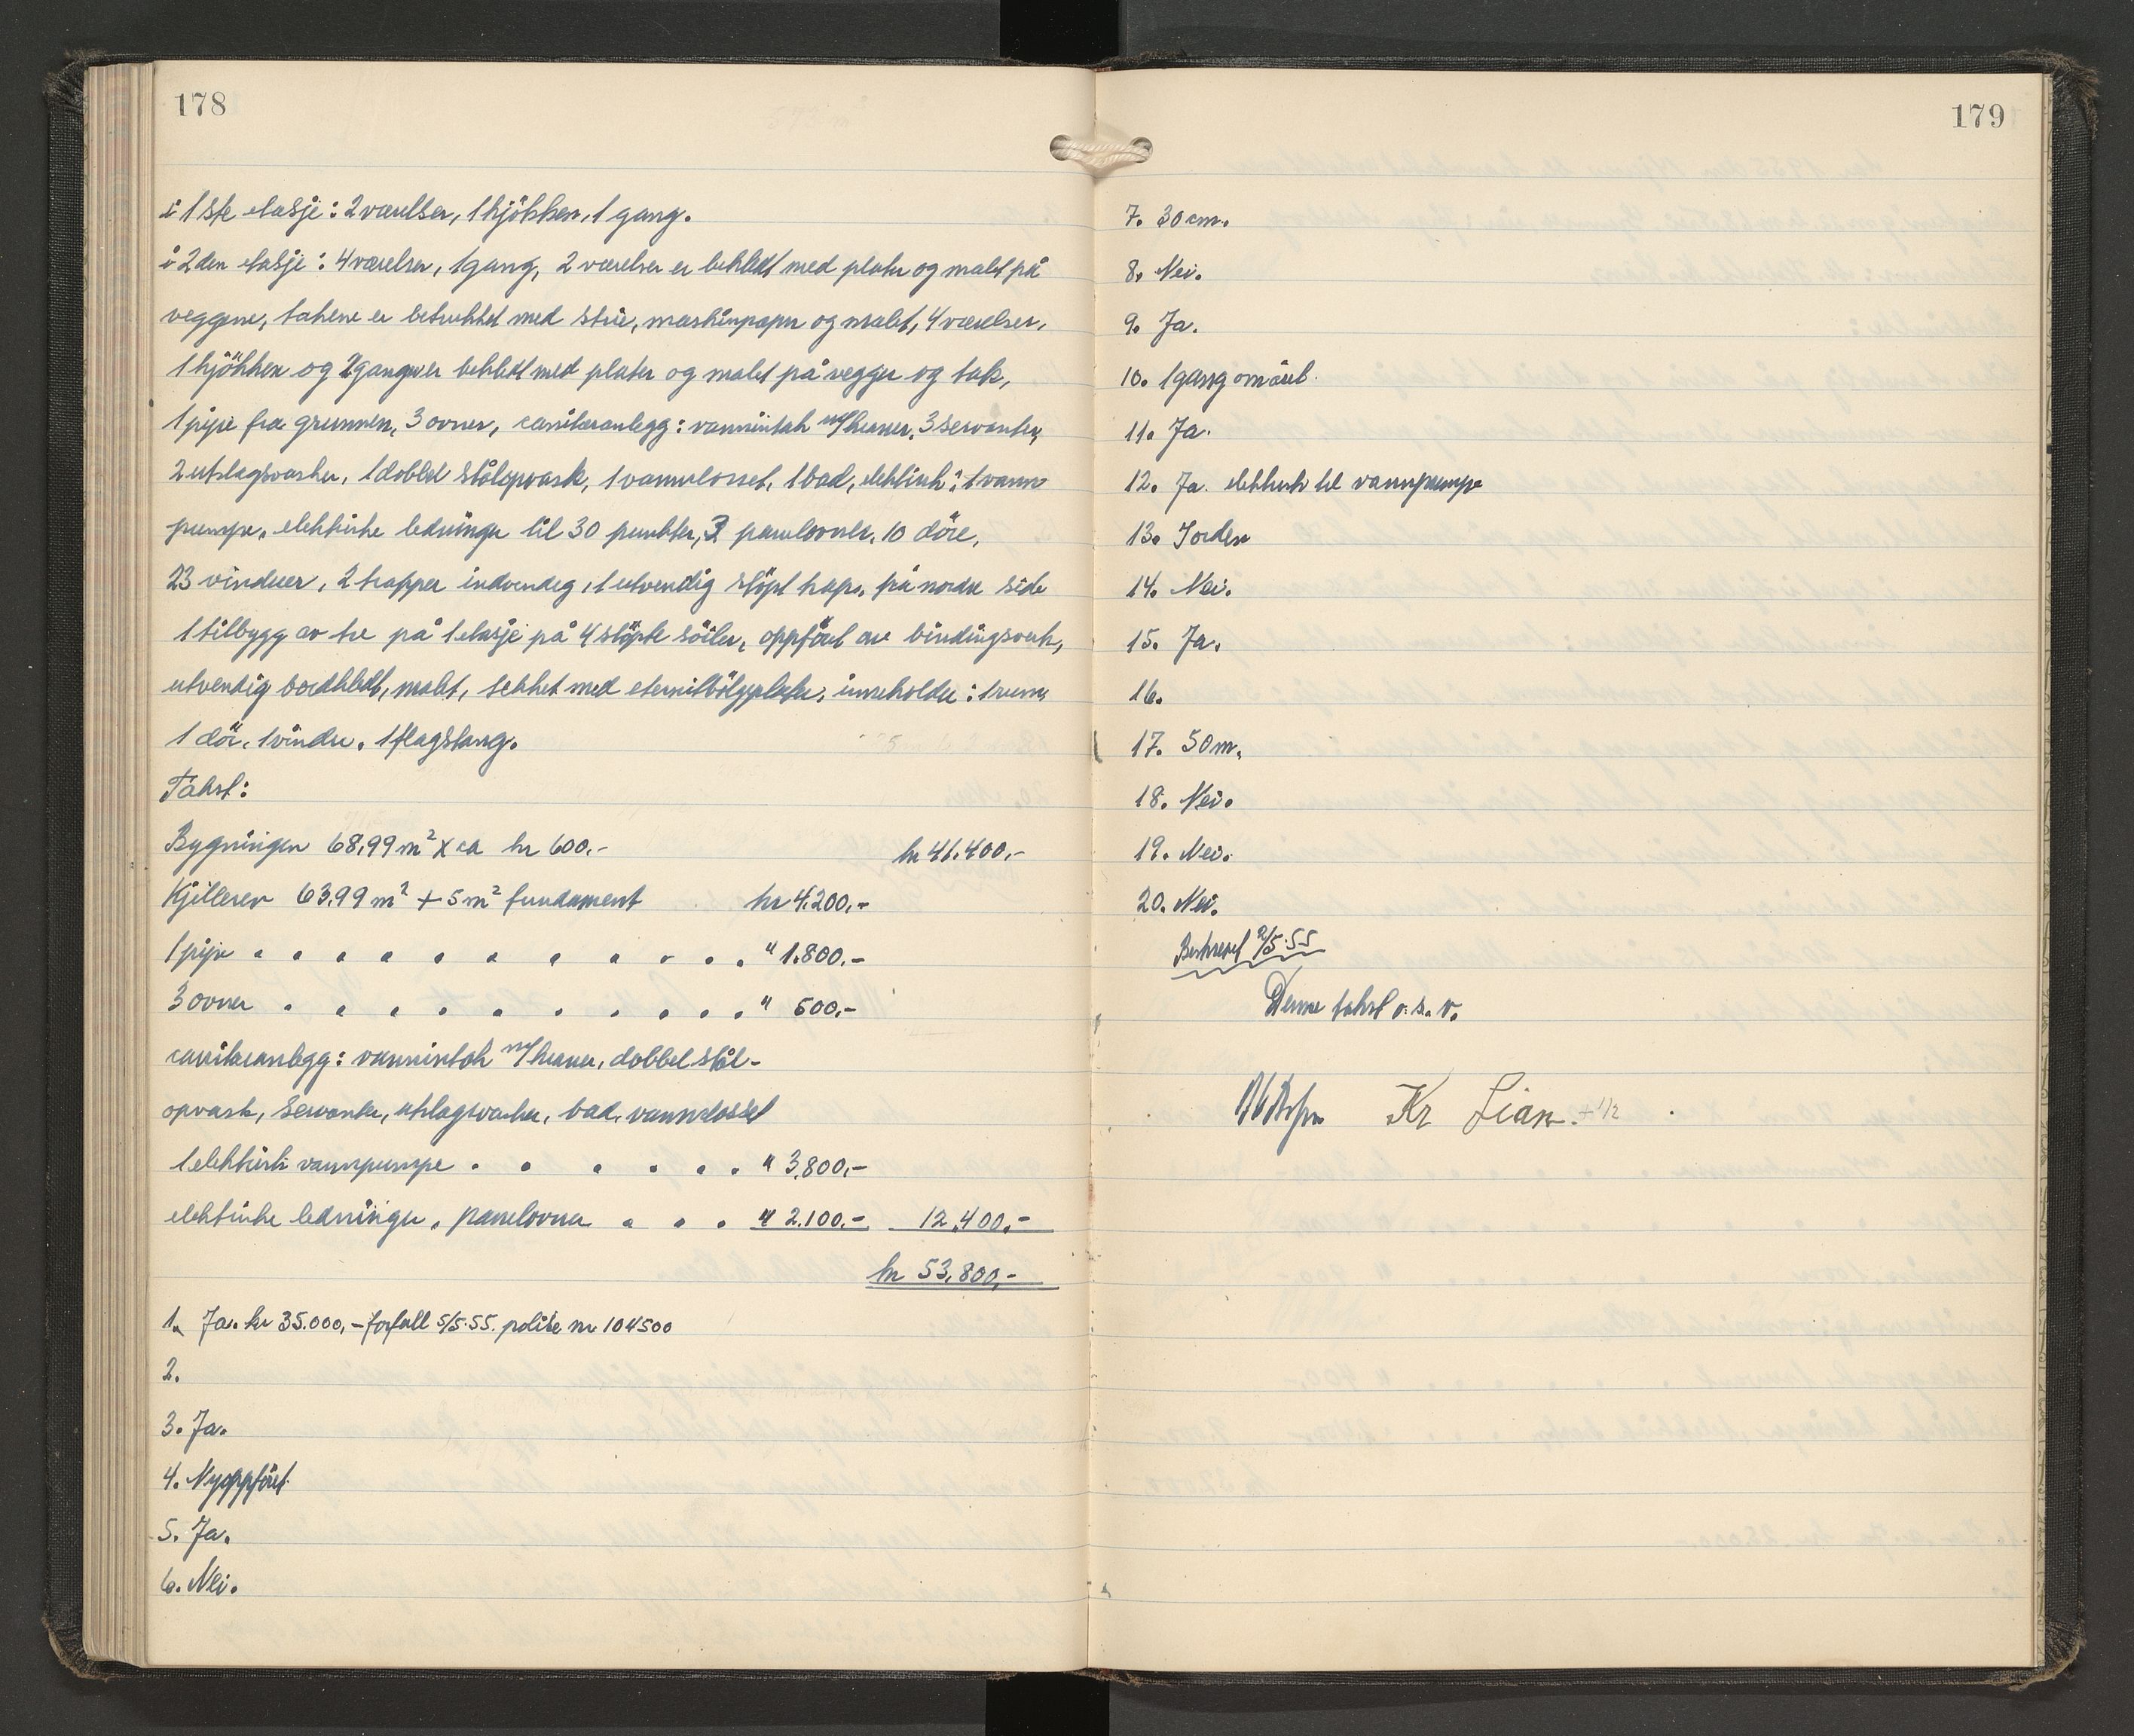 178
i 1ste etasje: 2 værelser, 1 kjökken, 1 gang.
i 2den etasje: 4 værelser, 1 gang, 2 værelser er bekledt med plater og malet på
veggene, takene er betrukket med strie, maskinpapir og malet, 4 værelser,
1 kjökken og 2 ganger er bekledt med plater og malet på vegger og tak,
1 pipe fra grunnen, 3 ovner, sanitæranlegg: vanninntak m/kraner, 3 servanter,
2 utslagsvasker, 1 dobbel stålopvask, 1 vannclosset, 1 bad, elektrisk: 1 vann
pumpe, elektriske ledninger til 30 punkter, 3 panelovner, 10 döre,
23 vinduer, 2 trapper indvendig, 1 utvendig stöpt trapp, på nordre side
1 tilbygg av tre på 1 etasje på 4 stöpte söiler, oppfört av bindingsverk,
utvendig bordkledt, malet, tekket med eternitbölgeplater, inneholder: 1 rum,
1 dör, 1 vindu, 1 flagstang.
Takst:
Bygningen 68,99 m² x ca kr 600,- kr 41.400,-
Kjelleren 63,99 m² + 5 m² fundament kr 4.200,-
1 pipe . . . . . . . . . . . . " 1.800,-
3 ovner . . . . . . . . . . . " 500,-
sanitæranlegg: vanninntak m/kraner, dobbel stål-
opvask, servanter, utslagsvasker, bad, vannclosset
1 elektrisk vannpumpe . . . . . . " 3,800,-
elektriske ledninger, panelovner . . . " 2.100,- 12,400,-
kr 53,800,-
1. Ja. kr 35.000,- forfall 5/5.55. polise nr 104500
2.
3. Ja.
4. Nyoppfört.
5. Ja.
6. Nei.
179
7. 30 cm.
8. Nei.
9. Ja.
10. 1 gang om året.
11. Ja.
12. Ja. elektrisk til vannpumpe
13. Jorden
14. Nei.
15. Ja.
16.
17. 50 m.
18. Nei.
19. Nei.
20. Nei.
Beskrevet 2/5.55
Denne takst o.s.v.
Kr Lian